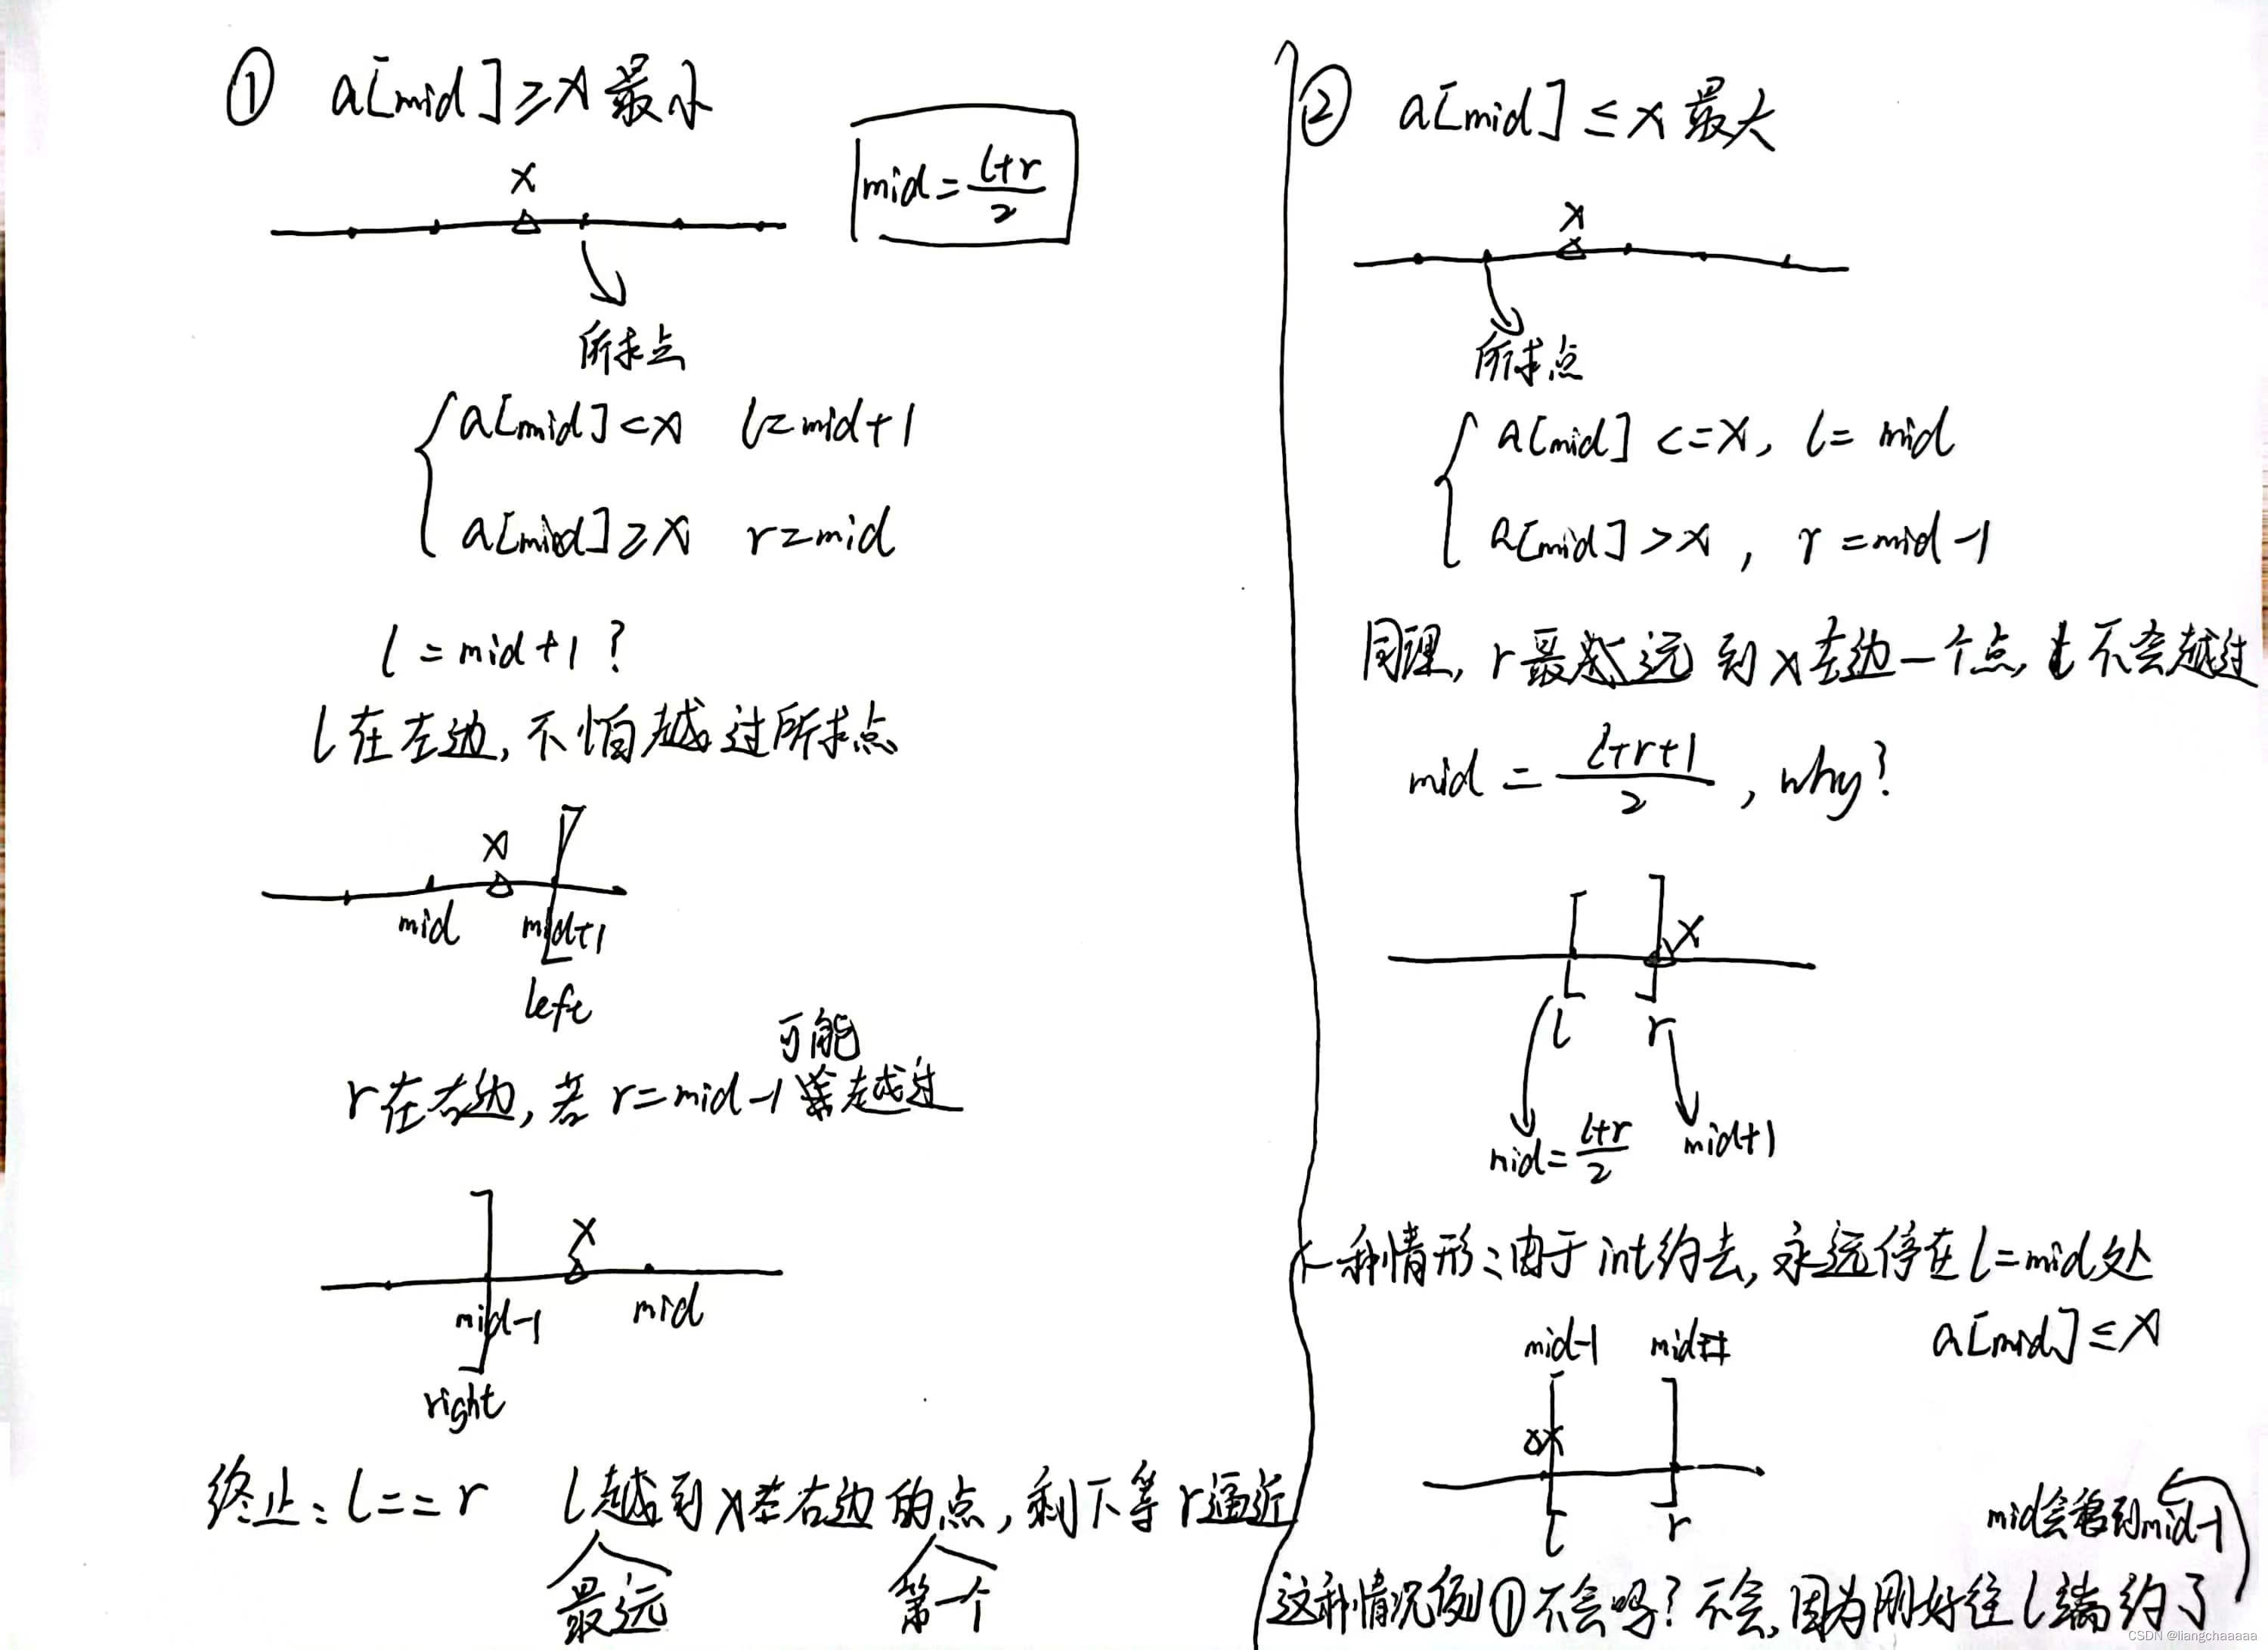 ① a[mid]≥x最小
mid=(l+r)/2
x
所求点
a[mid]<x l=mid+1
a[mid]≥x r=mid
l=mid+1?
l在左边,不怕越过所求点
x
mid mid+1
left
可能
r在右边,若r=mid-1越过
x
mid-1 mid
right
终止:l==r l最远越到x右边的第一个点,剩下等r逼近
② a[mid]≤x最大
x
所求点
a[mid]<=x, l=mid
a[mid]>x, r=mid-1
同理,r最远到x左边一个点,也不会越过
mid=(l+r+1)/2, why?
x
l r
mid=(l+r)/2 mid+1
一种情形:由于int约去,永远停在l=mid处
a[mid]≤x
mid-1 mid
x
l r
mid会卷到mid-1
这种情况例①不会吗?不会,因为刚好往l端约了
CSDN @liangchaaaaa